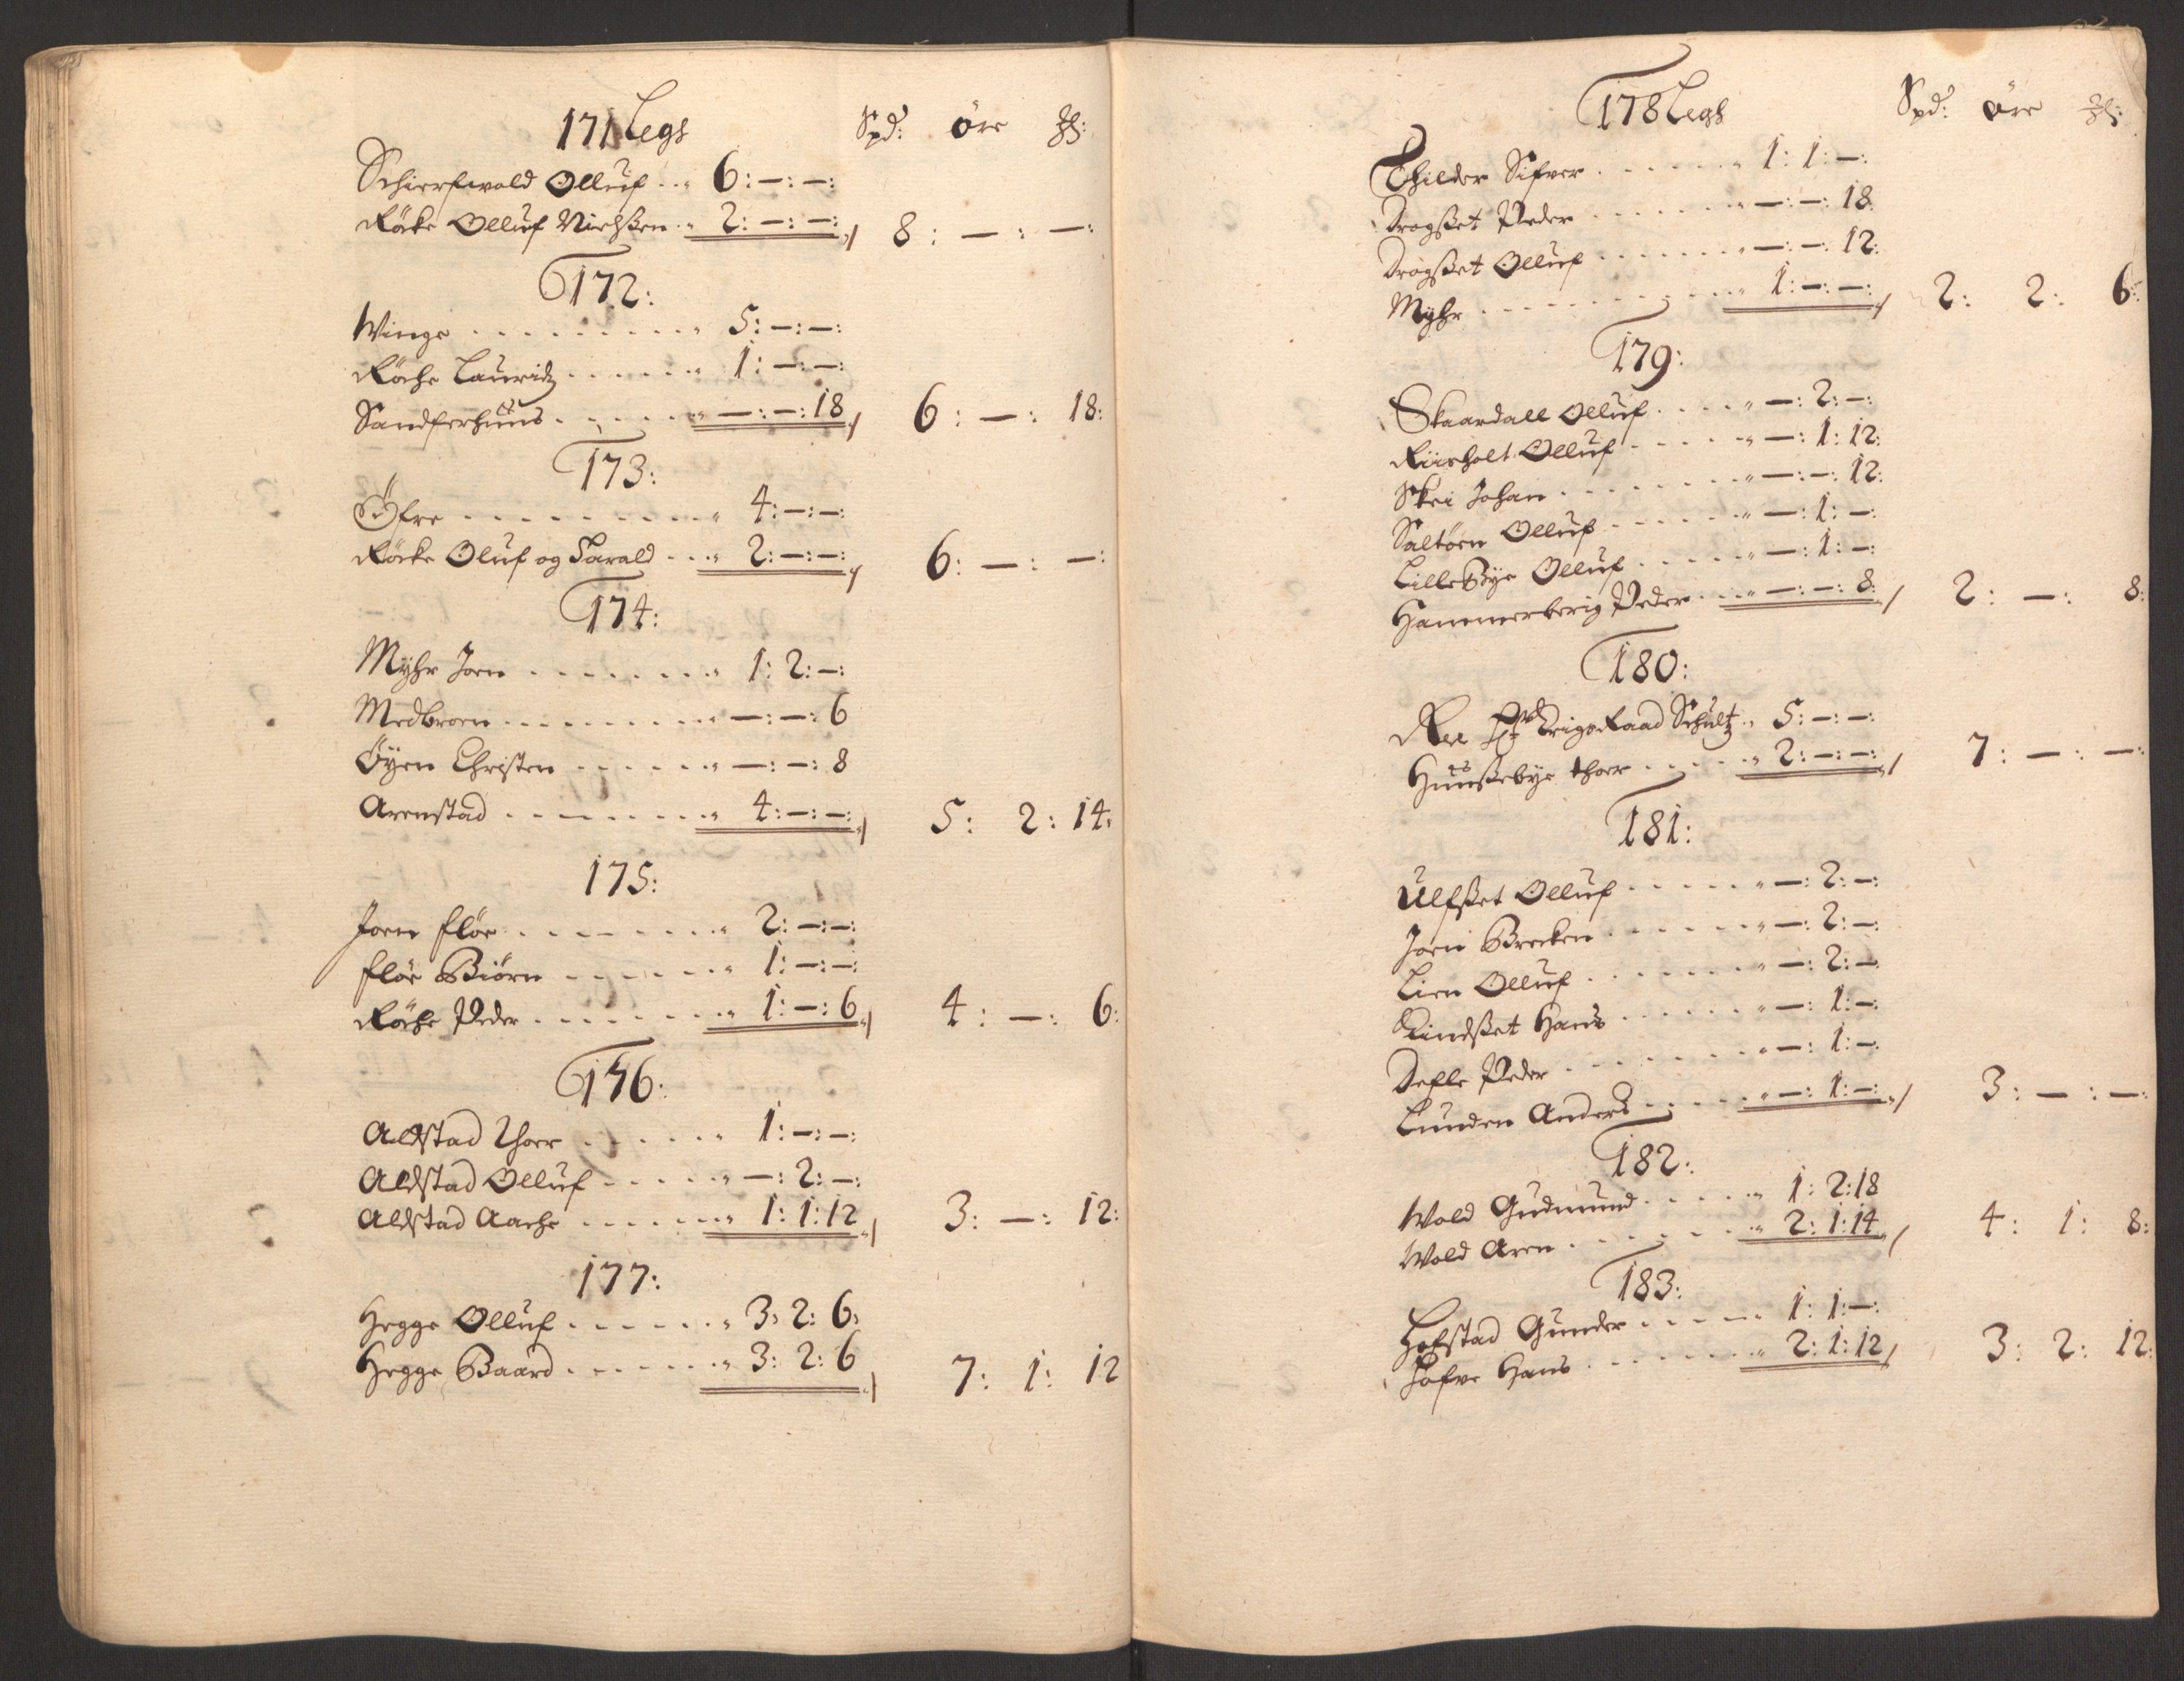 171 Legs Spd: öre
Schierfwold Olluf . . . 6: –: –:
Röcke Olluf Nielsßen . . 2: –: –: // 8: –: –:
172:
Winge . . . . . . . . . 5: –: –:
Röche Lauridz . . . . . . 1: –: –:
Sandferhuus . . . . . –: –: 18 // 6: –: 18:
173:
Öfre . . . . . . . . . 4: –: –:
Röcke Oluf og Harald . . . 2: –: –: // 6: –: –:
174:
Myhr Joen . . . . . . . 1: 2: –:
Medbroen . . . . . . . . –: –: 6
Öyen Christen . . . . . . –: –: 8
Arenstad . . . . . . . . 4: –: –: // 5: 2: 14:
175:
Joen Flöe . . . . . . . 2: –: –:
Flöe Biörn . . . . . . . 1: –: –:
Röche Peder . . . . . . . 1: –: 6 // 4: –: 6:
176:
Aldstad Thoer . . . . . . 1: –: –:
Aldstad Olluf . . . . . –: 2: –:
Aldstad Aache . . . . . . 1: 1: 12 // 3: –: 12:
177:
Hegge Olluf . . . . . . 3: 2: 6:
Hegge Baard . . . . . . 3: 2: 6 // 7: 1: 12
178 Legs Spd: öre
Thilder Sifver . . . . . . 1: 1: –:
Drogset Peder . . . . . . –: –: 18
Drogset Olluf . . . . . . –: –: 12:
Myhr . . . . . . . . . 1: –: –: // 2: 2: 6:
179:
Skaardall Olluf . . . . –: 2: –:
Riisholt Olluf . . . . . –: 1: 12:
Skei Johan . . . . . . . –: –: 12:
Saltöen Olluf . . . . . –: 1: –:
Lillebye Olluf . . . . . –: 1: –:
Hammerberig Peder . . . –: –: 8: // 2: –: 8:
180:
Krigs Raad Schultz . 5: –: –:
Huusebye thoer . . . . . 2: –: –: // 7: –: –:
181:
Ulfset Olluf . . . . . –: 2: –:
Joen Brecken . . . . . . –: 2: –:
Lien Olluf . . . . . . –: 2: –:
Rindset Hans . . . . . . –: 1: –:
Defle Peder . . . . . . . –: 1: –:
Lunden Anders . . . . . –: 1: –: // 3: –: –:
182:
Wold Gudmund . . . . . 1: 2: 18
Wold Aren . . . . . . . 2: 1: 14 // 4: 1: 8:
183:
Hofstad Gunder . . . . . 1: 1: –:
Hofve Hans . . . . . . . 2: 1: 12 // 3: 2: 12: